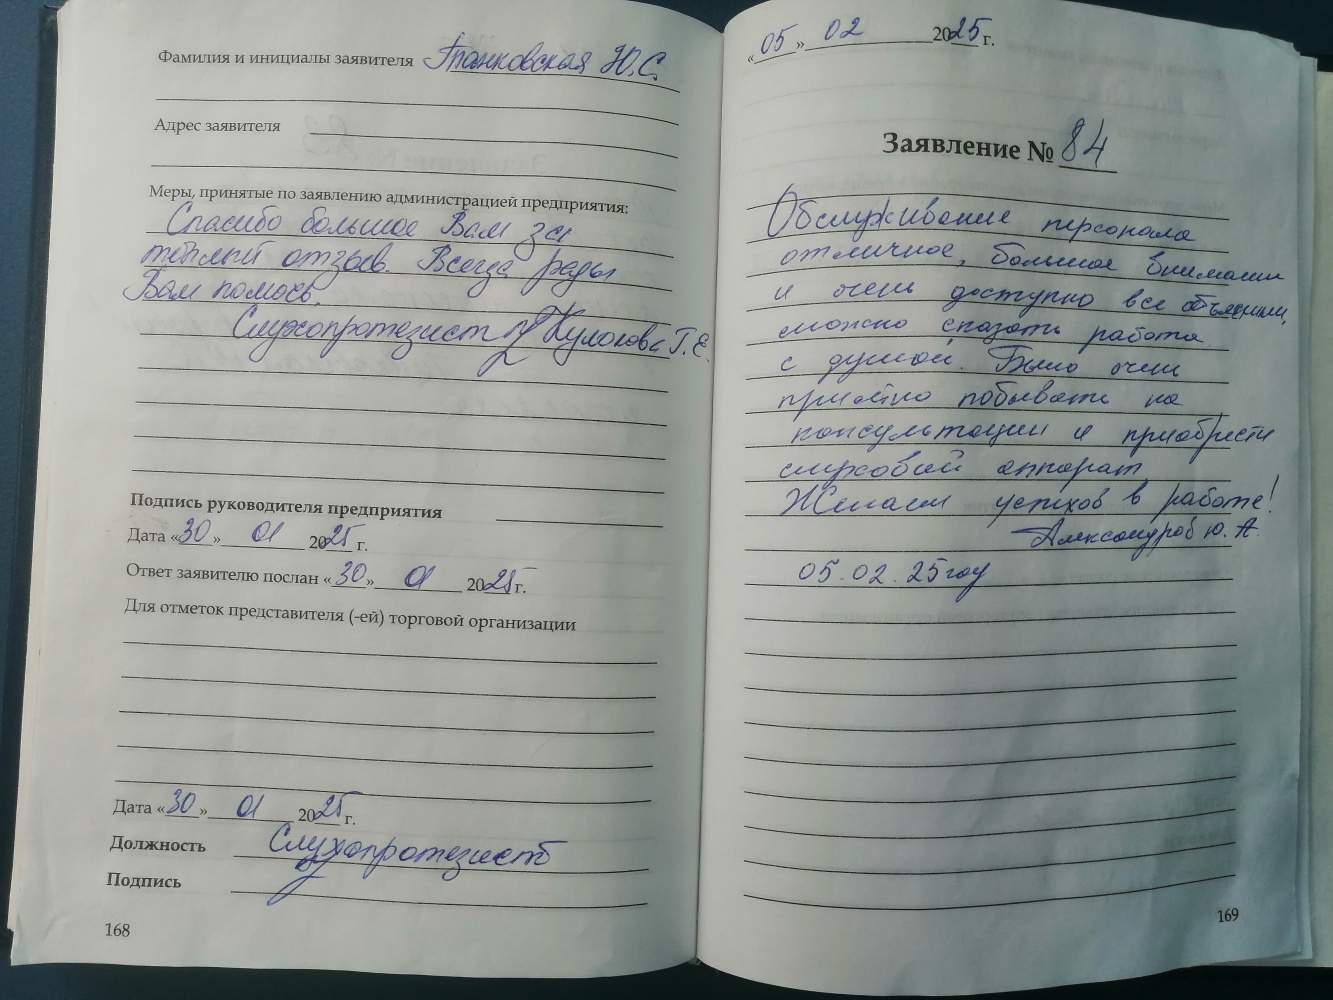 Фамилия и инициалы заявителя Ю.С.
Адрес заявителя
Меры, принятые по заявлению администрацией предприятия:
Спасибо большое Вам за
тёплый отзыв. Всегда рады
Вам помочь.
Слухопротезист Г.Е.
Подпись руководителя предприятия
Дата «30» 01 2025 г.
Ответ заявителю послан «30» 01 2025 г.
Для отметок представителя (-ей) торговой организации
Дата «30» 01 2025 г.
Должность Слухопротезист
Подпись
168
«05» 02 2025 г.
Заявление № 84
Обслуживание персонала
отличное, большое внимание
и очень доступно все объяснили,
можно сказать работа
с душой. Было очень
приятно побывать на
консультации и приобрести
слуховой аппарат
Желаем успехов в работе!
Александров Ю.А.
05.02.25 год
169